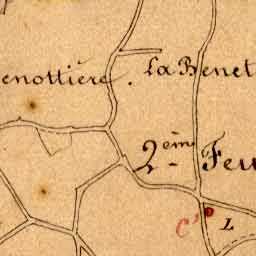 enottière. La Benet
2.ème Feu
C' L